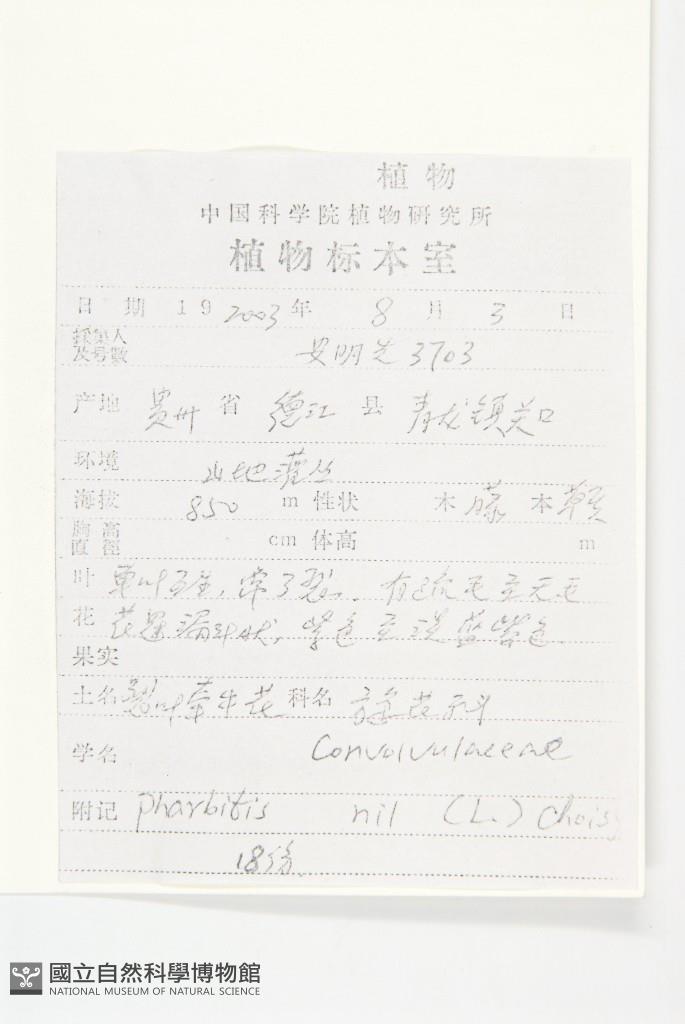 植物
中国科学院植物研究所
植物标本室
日期 19 2003 年 8 月 3 日
採集人
及号數 安明先 3703
产地 贵州 省 德江 县 青龙镇关口
环境 山地灌丛
海拔 850 m 性状 木 藤 本 草质
胸高
直徑 cm 体高 m
叶 单叶互生,常3裂. 有疏毛至无毛
花 花冠漏斗状,紫色至淡蓝紫色
果实
土名 裂叶牵牛花 科名 旋花科
学名 Convolvulaceae
附记 Pharbitis nil (L.) Chois
18份.
國立自然科學博物館
NATIONAL MUSEUM OF NATURAL SCIENCE